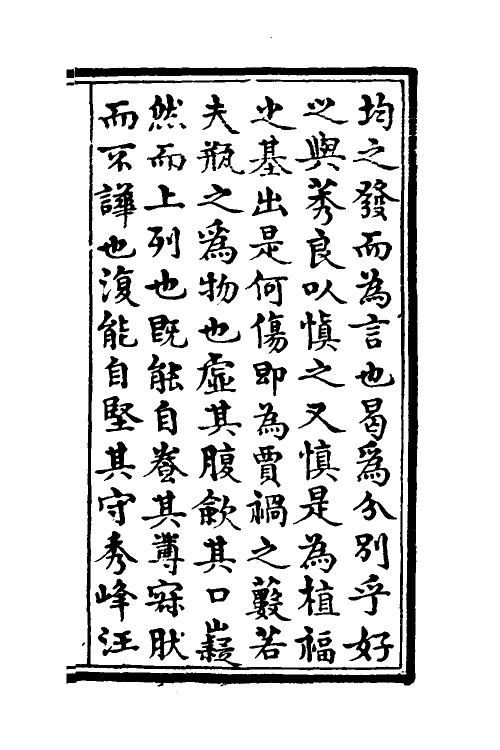 均之發而為言也曷爲分別乎好
之與莠良以慎之又慎是為植福
之基出是何傷即為賈禍之藪若
夫瓶之爲物也虛其腹歛其口嶷
然而上列也既能自養其蓴寂肰
而不譁也復能自堅其守秀峰汪